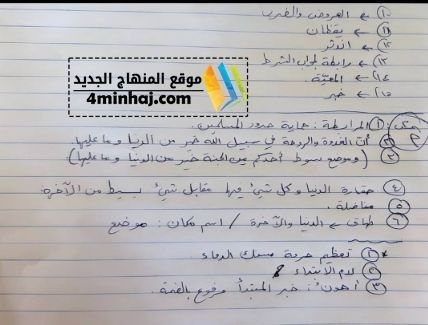 ١٠) ← العروض والضرب
١١) ← يقظان
١٢) ← الأثر
١٣) ← رابطة لجواب الشرط
١٤) ← المعيّة
١٥) ← خبر
موقع المنهاج الجديد
4minhaj.com
① المرابطة : حماية حدود المسلمين.
② أنّ الغدوة والروحة في سبيل الله خير من الدنيا وما عليها.
③ (وموضع سوط أحدكم من الجنة خير من الدنيا وما عليها)
④ حقارة الدنيا وكل شيء فيها مقابل شيء بسيط من الآخرة.
⑤ مفاضلة.
⑥ طباق ← الدنيا والآخرة / اسم مكان : موضع
* ① تعظيم حرمة سفك الدماء.
② لام الابتداء
③ أهونُ : خبر المبتدأ مرفوع بالضمة.